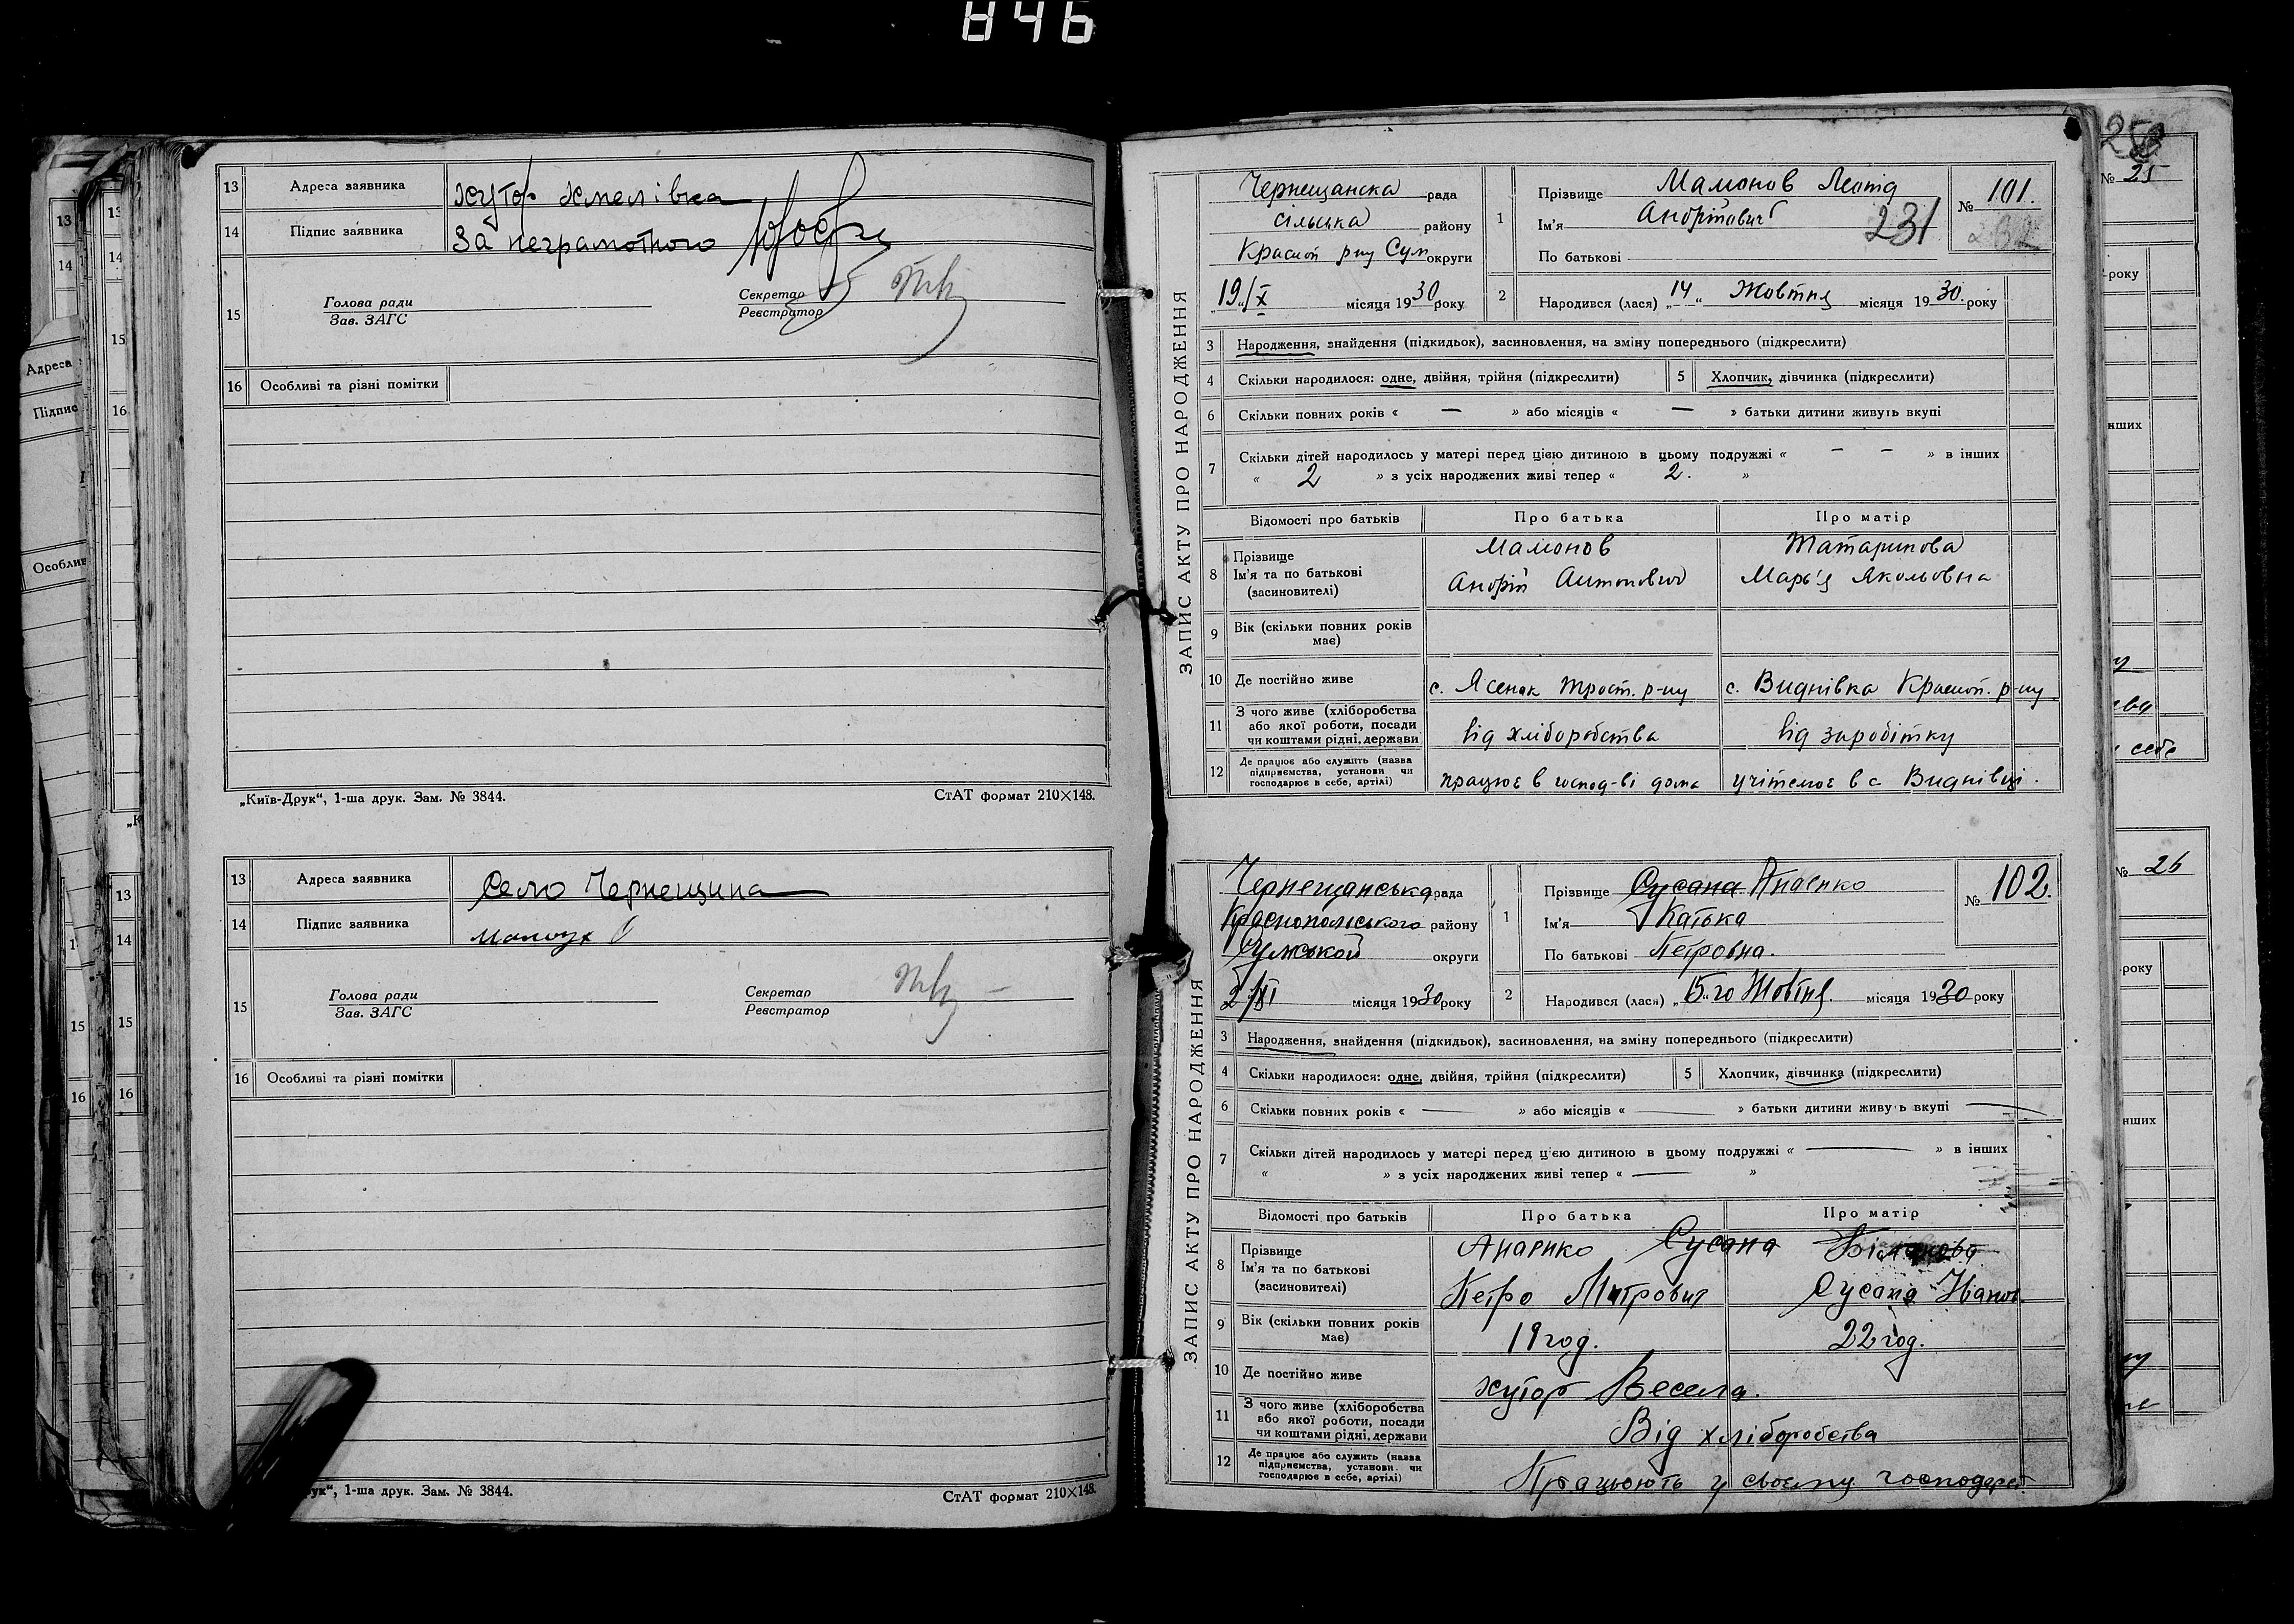 846
13 Адреса заявника хутор Хмелівка
14 Підпис заявника За неграмотного
15 Голова ради Секретар
Зав. ЗАГС Реєстратор
16 Особливі та різні помітки
„Київ-Друк“, 1-ша друк. Зам. № 3844. СтАТ формат 210×148.
13 Адреса заявника Село Чернещина
14 Підпис заявника
15 Голова ради Секретар
Зав. ЗАГС Реєстратор
16 Особливі та різні помітки
рук“, 1-ша друк. Зам. № 3844. СтАТ формат 210×148.
ЗАПИС АКТУ ПРО НАРОДЖЕННЯ
Чернещанска рада
сільська району
Красноп р-ну Сум округи
„19“/X місяця 1930 року
1 Прізвище Мамонов Леонід
Ім'я Андрійович
По батькові
231
№ 101.
232
2 Народився (лася) „14“ Жовтня місяця 1930. року
3 Народження, знайдення (підкидьок), засиновлення, на зміну попереднього (підкреслити)
4 Скільки народилося: одне, двійня, трійня (підкреслити) 5 Хлопчик, дівчинка (підкреслити)
6 Скільки повних років « — » або місяців « — » батьки дитини живуть вкупі
7 Скільки дітей народилось у матері перед цією дитиною в цьому подружжі « – – » в інших
« 2 » з усіх народжених живі тепер « 2. »
Відомості про батьків Про батька Про матір
8 Прізвище Мамонов Татаринова
Ім'я та по батькові Андрій Антонович Мар'я Якольовна
(засиновителі)
9 Вік (скільки повних років
має)
10 Де постійно живе с. Ясенок Трост. р-ну с. Виднівка Красноп. р-ну
11 З чого живе (хліборобства
або якої роботи, посади
чи коштами рідні, держави від хліборобства від заробітку
12 Де працює або служить (назва
підприємства, установи чи
господарює в себе, артілі) працює в господ-ві дома учітелює в с Виднівці.
ЗАПИС АКТУ ПРО НАРОДЖЕННЯ
Чернещанська рада
Краснопольського району
Сумской округи
2/XI місяця 1930 року
1 Прізвище Сусана Анаенко
Ім'я Катька
По батькові Петровна.
№ 102.
2 Народився (лася) „15“го Жовтня. місяця 1930 року
3 Народження, знайдення (підкидьок), засиновлення, на зміну попереднього (підкреслити)
4 Скільки народилося: одне, двійня, трійня (підкреслити) 5 Хлопчик, дівчинка (підкреслити)
6 Скільки повних років « — » або місяців « — » батьки дитини живуть вкупі —
7 Скільки дітей народилось у матері перед цією дитиною в цьому подружжі « — » в інших
« » з усіх народжених живі тепер « — »
Відомості про батьків Про батька Про матір
8 Прізвище Анаенко Сусана
Ім'я та по батькові
(засиновителі) Петро Митрович Сусана Иванов.
9 Вік (скільки повних років
має) 19 год. 22 год.
10 Де постійно живе хутор Весела.
11 З чого живе (хліборобства
або якої роботи, посади
чи коштами рідні, держави Від хліборобства
12 Де працює або служить (назва
підприємства, установи чи
господарює в себе, артілі) Працюють у своєму господарст.
№ 25
№ 26